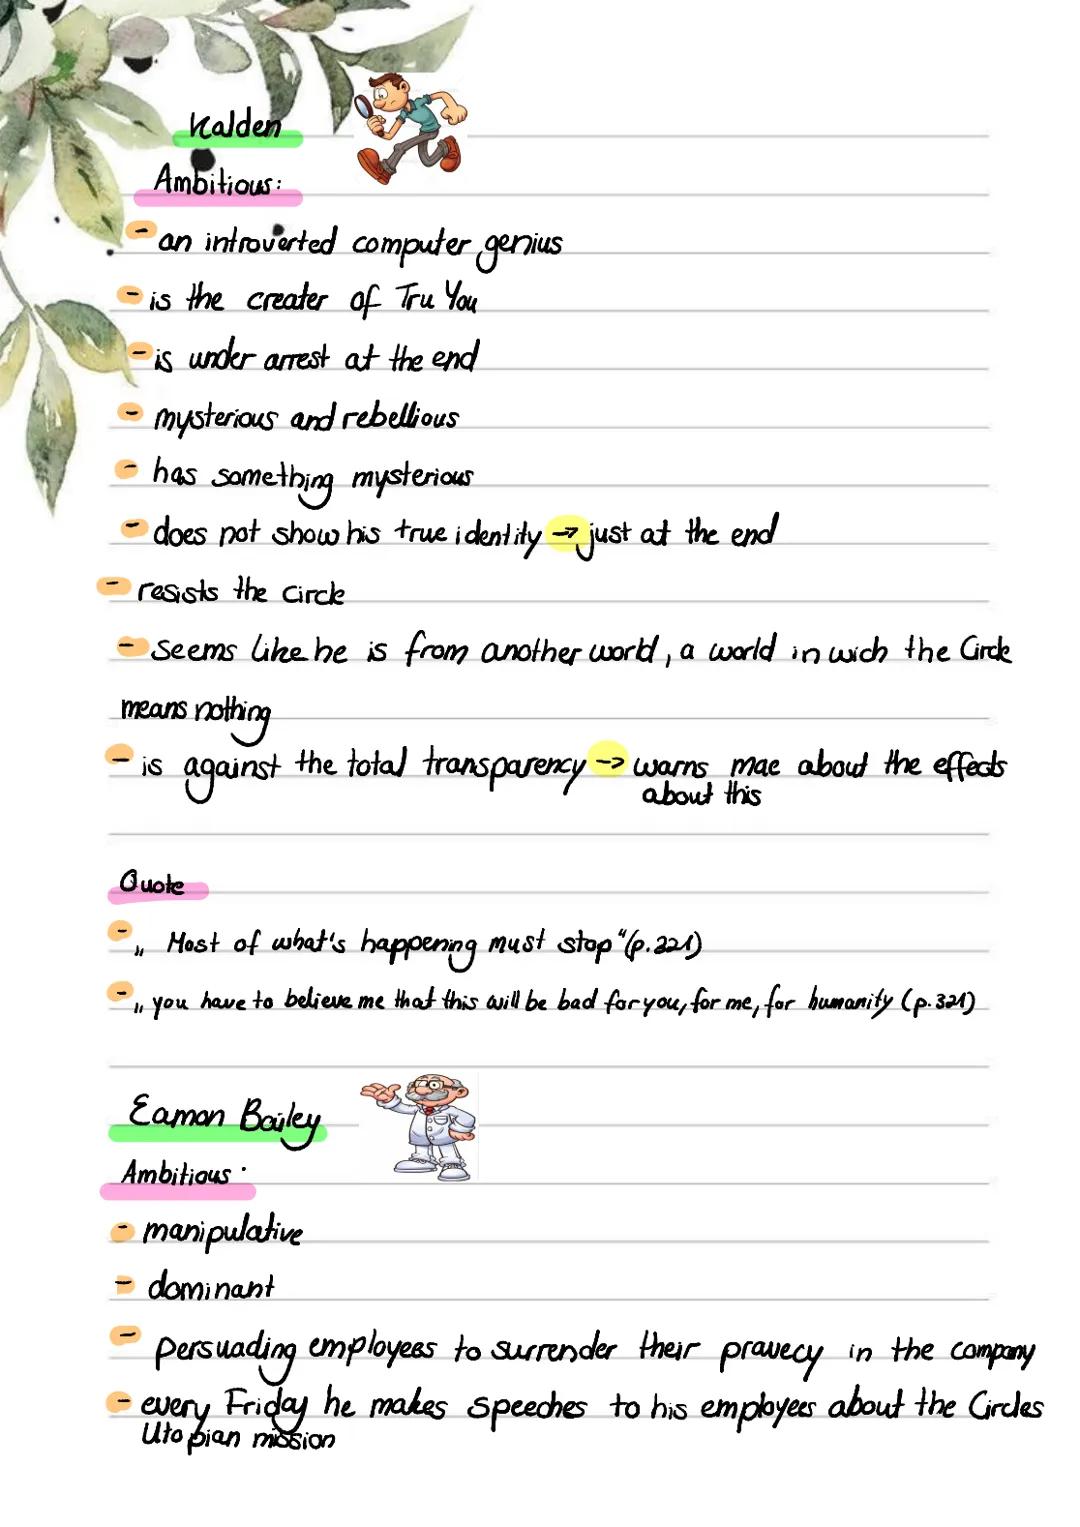 Kalden
Ambitious:
- an introverted computer genius
- is the creater of Tru You
- is under arrest at the end
- mysterious and rebellious
- has something mysterious
- does not show his true identity → just at the end
- resists the circle
- seems like he is from another world, a world in wich the Circle
means nothing
- is against the total transparency → warns mae about the effects
about this
Quote
- „ Most of what's happening must stop “ (p. 221)
- „ you have to believe me that this will be bad for you, for me, for humanity (p. 321)
Eamon Bailey
Ambitious:
- manipulative
- dominant
- Persuading employees to surrender their pravecy in the company
- every Friday he makes speeches to his employees about the Circles
Utopian mission